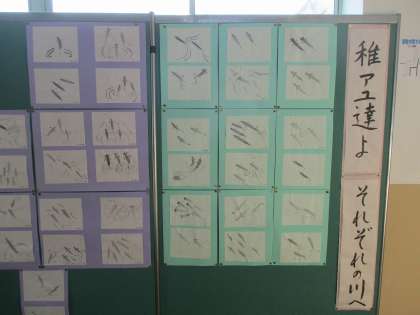 稚アユ達よ
それぞれの川へ